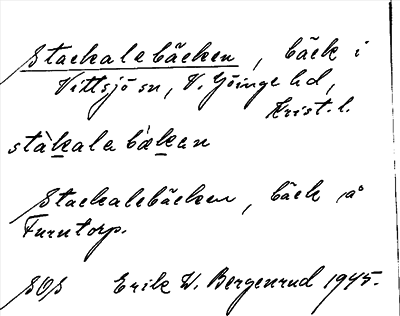 Stackalebäcken, bäck i
Vittsjö sn, V. Göinge hd,
Krist. l.
stàkala bàkan
Stackalebäcken, bäck på
Furutorp.
SOS Erik W. Bergenrud 1945.